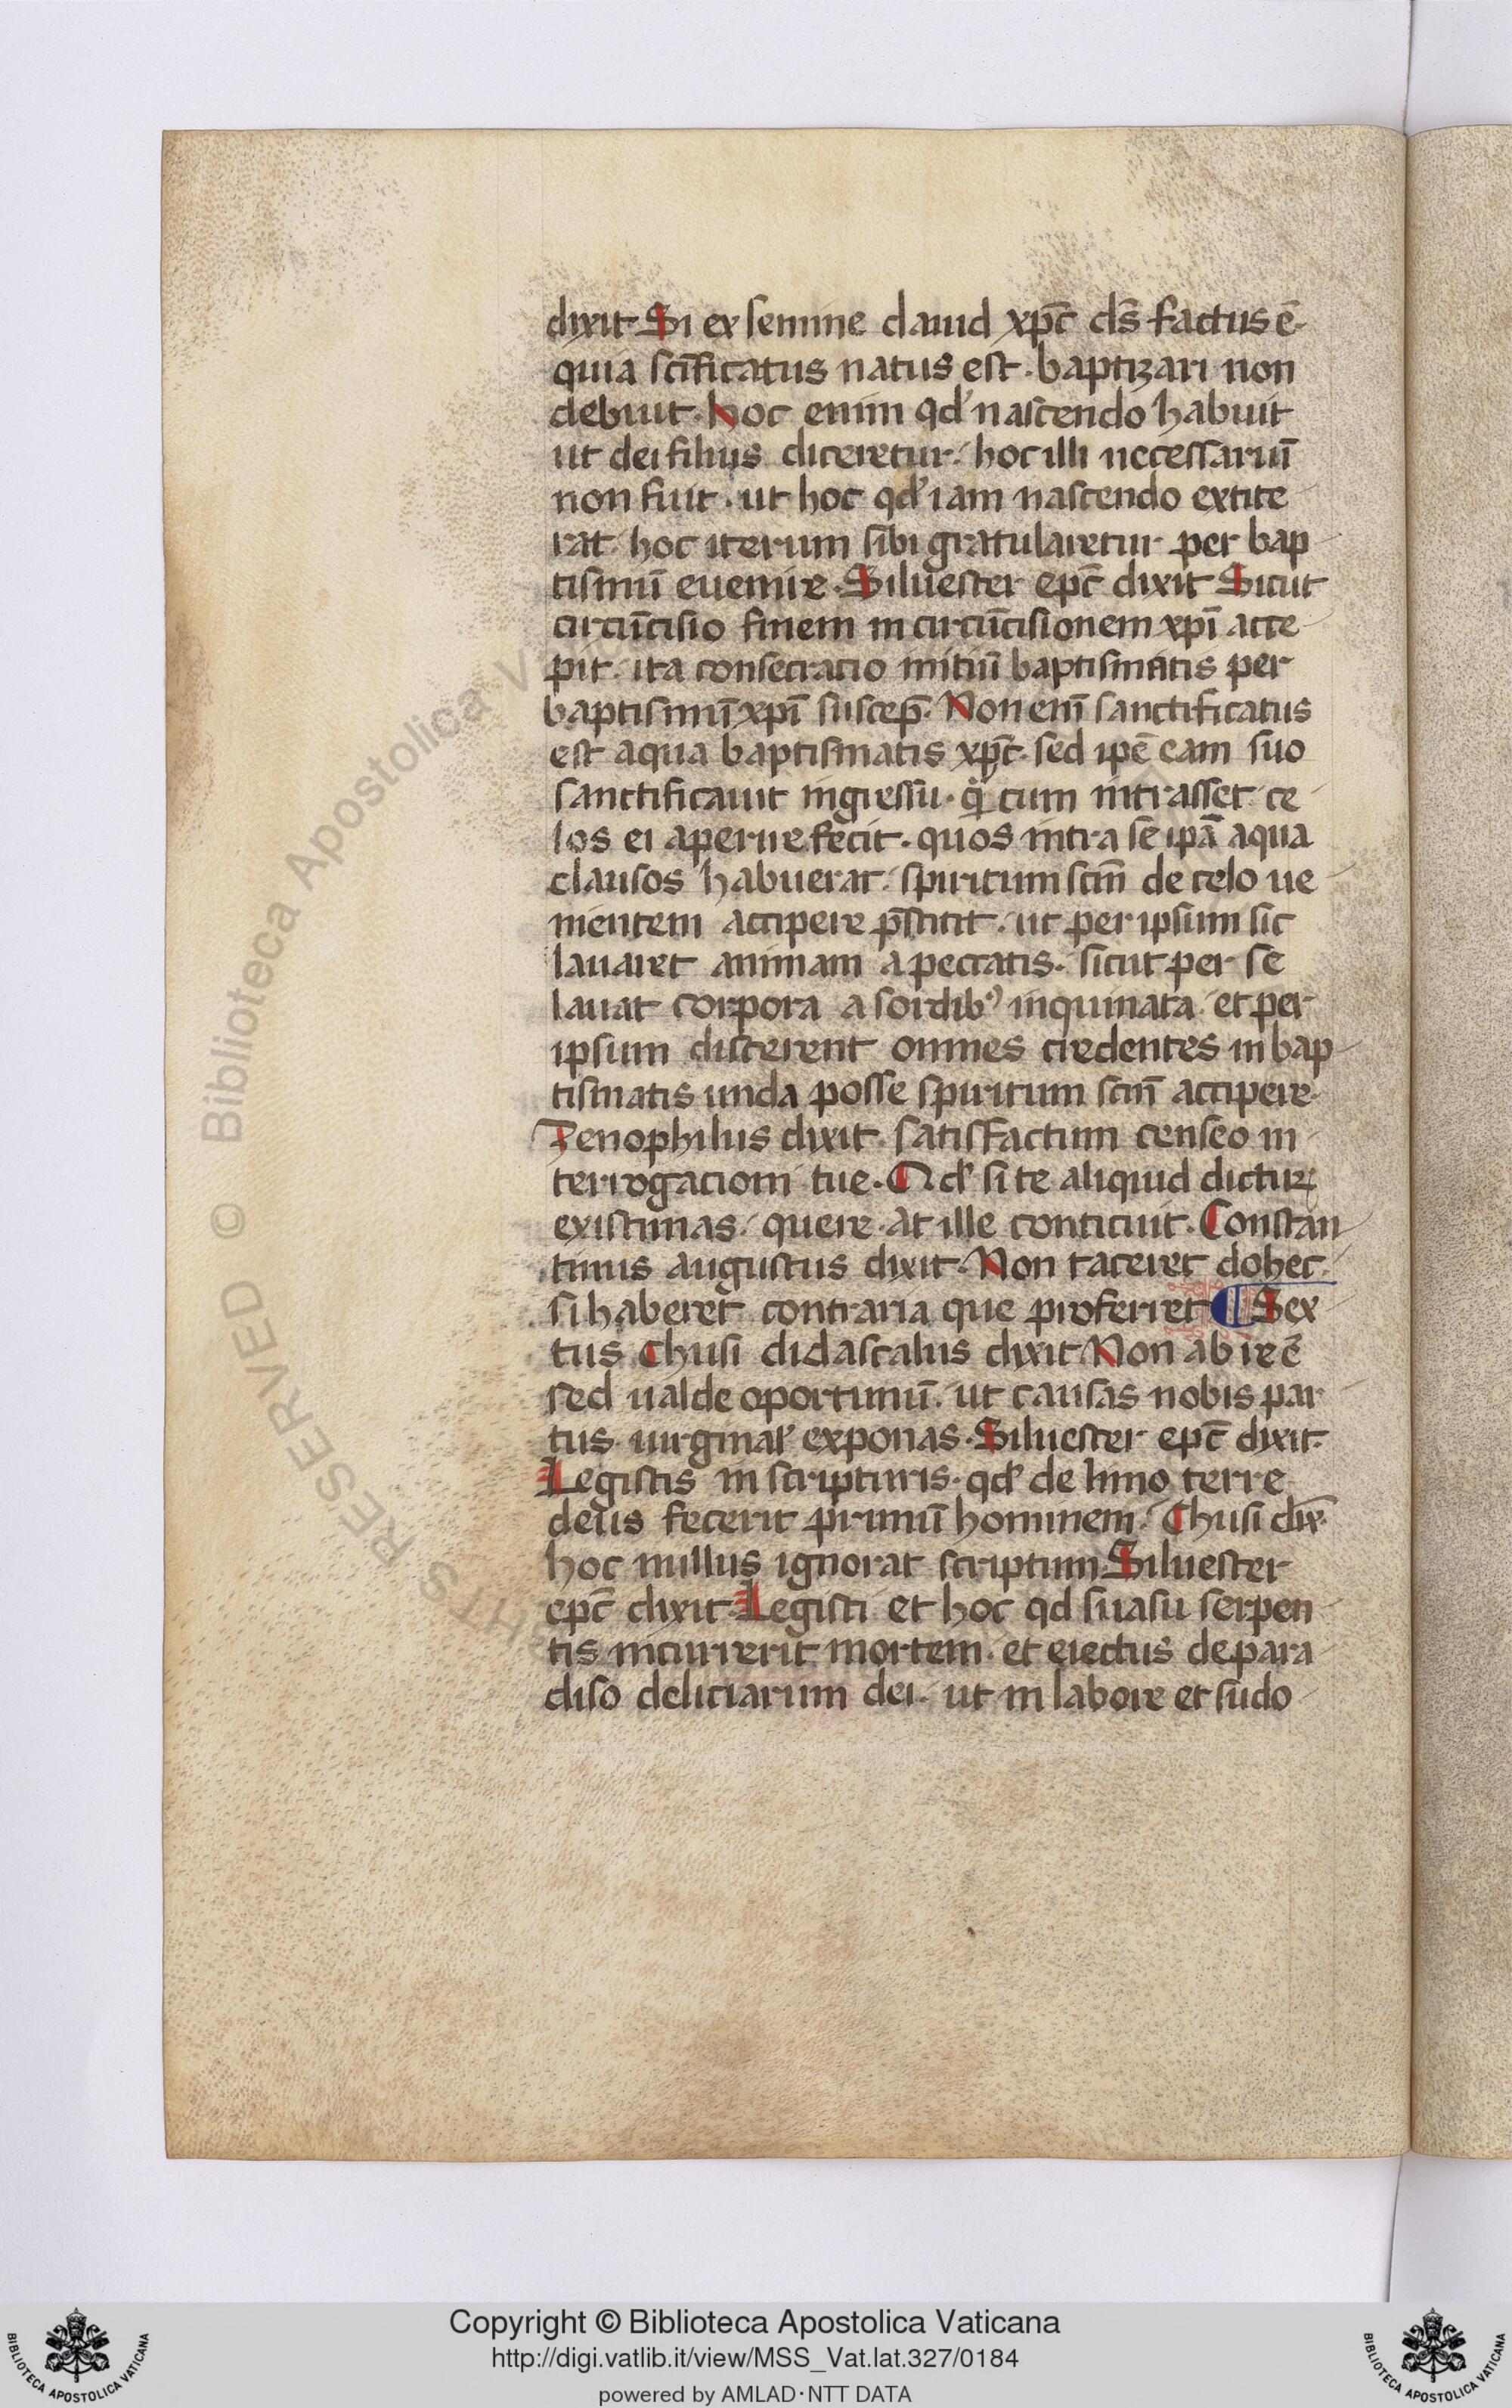 dixit. Si ex semine dauid xpc̄ ds̄ factus ē.
quia sc̄ificatus natus est. baptizari non
debuit. Hoc enim qd' nascendo habuit
ut dei filius diceretur. hoc illi necessariū
non fuit. ut hoc qd' iam nascendo extite
rat. hoc iterum sibi gratularetur per bap
tismū euenire. Siluester epc̄ dixit. Sicut
circūcisio finem in circūcisionem xpī acce
pit. ita consecratio initiū baptismatis per
baptismū xpī suscep̄. Non enī sanctificatus
est aqua baptismatis xpc̄. sed ipē eam suo
sanctificauit ingressu. q̇ cum intrasset ce
los ei aperire fecit. quos intra se ipā aqua
clausos habuerat. spiritum sc̄m de celo ue
nientem accipere p̄stitit. ut per ipsum sic
lauaret animam a peccatis. sicut per se
lauat corpora a sordib' inquinata. et per
ipsum discerent omnes credentes in bap
tismatis unda posse spiritum sc̄m accipere.
Zenophilus dixit. satisfactum censeo in
terrogacioni tue. Qd' si te aliquid dicturū
existimas. quere. at ille conticuit. Constan
tinus augustus dixit. Non taceret dohec
si haberet contraria que proferret ¶ Sex
tus Chusi didascalus dixit. Non ab re ē
sed ualde oportunū. ut causas nobis par
tus uirginal' exponas. Siluester epc̄ dixit.
Legistis in scripturis. qd' de limo terre
deus fecerit primū hominem. Chusi dix̄.
hoc nullus ignorat scriptum. Siluester
epc̄ dixit. Legisti et hoc qd suasu serpen
tis incurrerit mortem. et eiectus de para
diso deliciarum dei. ut in labore et sudo
© Biblioteca Apostolica V
RESERVED
Copyright © Biblioteca Apostolica Vaticana
http://digi.vatlib.it/view/MSS_Vat.lat.327/0184
powered by AMLAD·NTT DATA
BIBLIOTECA APOSTOLICA VATICANA
BIBLIOTECA APOSTOLICA VATICANA